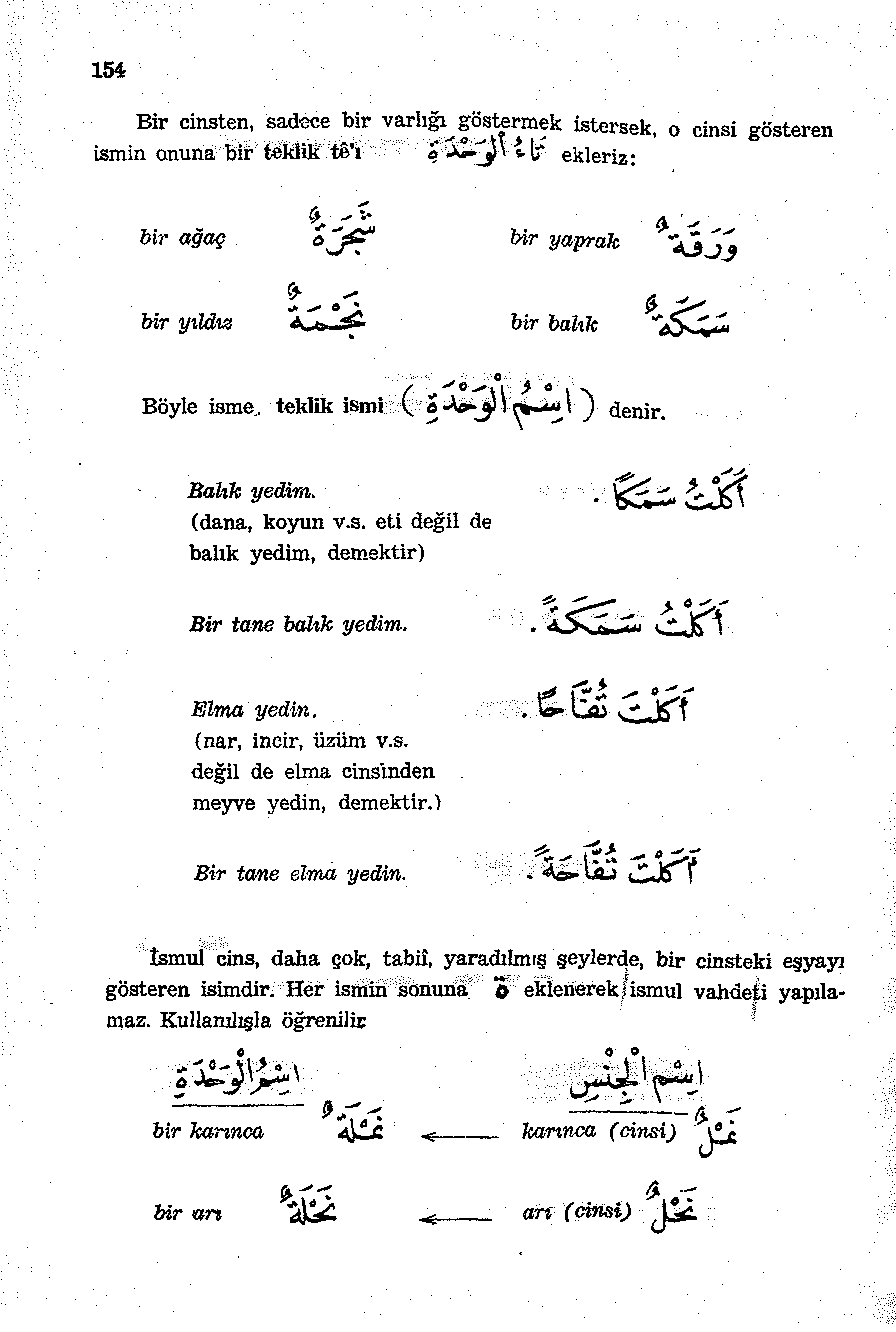 154
Bir cinsten, sadece bir varlığı göstermek istersek, o cinsi gösteren
ismin onuna bir teklik tê'ı تَاءُ الْوَحْدَةِ ekleriz:
bir ağaç شَجَرَةٌ bir yaprak وَرَقَةٌ
bir yıldız نَجْمَةٌ bir balık سَمَكَةٌ
Böyle isme, teklik ismi ( اِسْمُ الْوَحْدَةِ ) denir.
Balık yedim. أَكَلْتُ سَمَكًا .
(dana, koyun v.s. eti değil de
balık yedim, demektir)
Bir tane balık yedim. أَكَلْتُ سَمَكَةً .
Elma yedin. أَكَلْتَ تُفَّاحًا .
(nar, incir, üzüm v.s.
değil de elma cinsinden
meyve yedin, demektir.)
Bir tane elma yedin. أَكَلْتَ تُفَّاحَةً .
İsmul cins, daha çok, tabiî, yaradılmış şeylerde, bir cinsteki eşyayı
gösteren isimdir. Her ismin sonuna ة eklenerek ismul vahdeti yapıla-
maz. Kullanılışla öğrenilir
اِسْمُ الْوَحْدَةِ اِسْم الْجِنْسِ
bir karınca نَمْلَةٌ ← karınca (cinsi) نَمْلٌ
bir arı نَحْلَةٌ ← arı (cinsi) نَحْلٌ